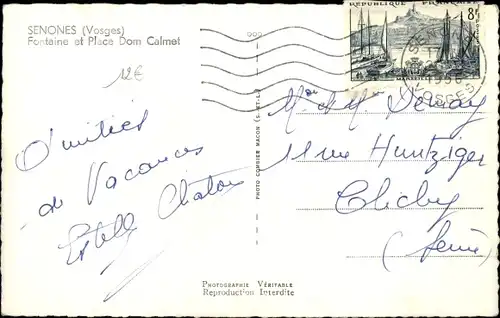 SENONES (Vosges)
Fontaine et Place Dom Calmet
12€
RÉPUBLIQUE FRANÇAISE
8F
1956
VOSGES
Amitiés
de Vacances
Estelle Chaton
PHOTO COMBIER MACON (S.-ET-L.)
Mr et Mme
11 rue Huntziger
Clichy
(Seine)
PHOTOGRAPHIE VÉRITABLE
Reproduction Interdite